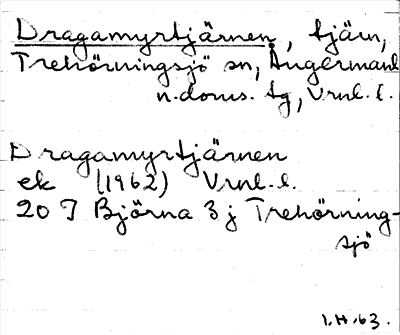 Dragamyrtjärnen, tjärn,
Trehörningsjö sn, Ångermanl.
n. doms. tg, Vrnl. l.
Dragamyrtjärnen
ek (1962) Vrnl. l.
20 I Björna 3 j Trehörning-
sjö
1.H.63.